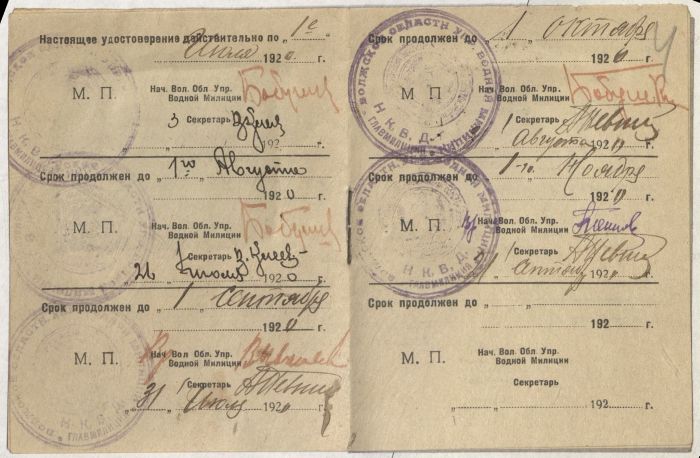 Настоящее удостоверение действительно по „ 1е
Июля 1920 г.
М. П.
Нач. Вол. Обл. Упр.
Водной Милиции
3 Секретарь
Срок продолжен до „ 1го Августа
1920 г.
М. П.
Нач. Вол. Обл. Упр.
Водной Милиции
Секретарь
26 Июля 1920
Срок продолжен до „ 1 „ сентября
1920 г.
М. П.
Вр Нач. Вол. Обл. Упр.
Водной Милиции
Секретарь
„ 31 „ Июля 1920 г.
Срок продолжен до „ 1 „ октября
1920 г.
М. П.
Нач. Вол. Обл. Упр.
Водной Милиции
Секретарь
1 Августа 1920 г.
Срок продолжен до „ 1-го Ноября
1920 г.
Вр Нач. Вол. Обл. Упр.
Водной Милиции
Секретарь
1920 г.
Срок продолжен до „ „
1920 г.
М. П.
Нач. Вол. Обл. Упр.
Водной Милиции
Секретарь
„ „ 1920 г.
Н. К. В. Д.
ГЛАВМИЛИЦИИ